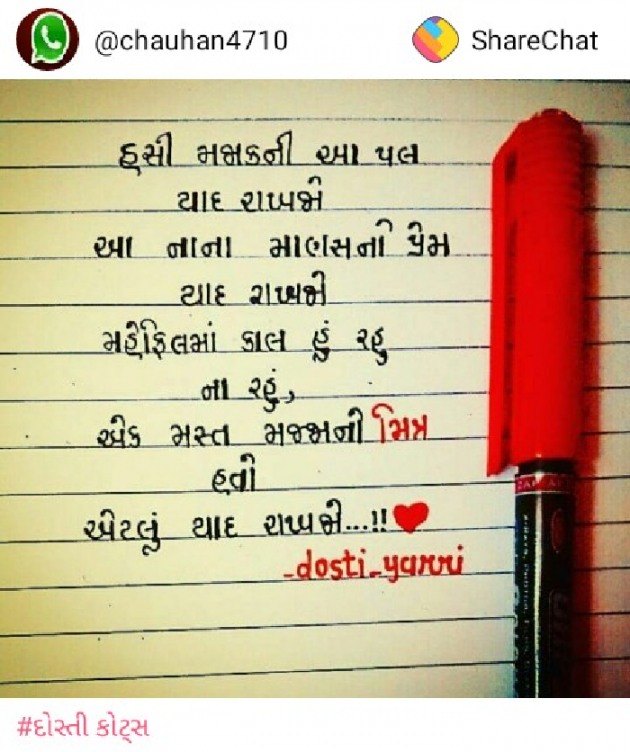 @chauhan4710 ShareChat
હસી મજાકની આ પલ
યાદ રાખજો
આ નાના માણસનો પ્રેમ
યાદ રાખજો
મહેફિલમાં કાલ હું રહુ
ના રહું,
એક મસ્ત મજાની મિત્ર
હતો
એટલું યાદ રાખજો...!!
_dosti_yarri
#દોસ્તી કોટ્સ